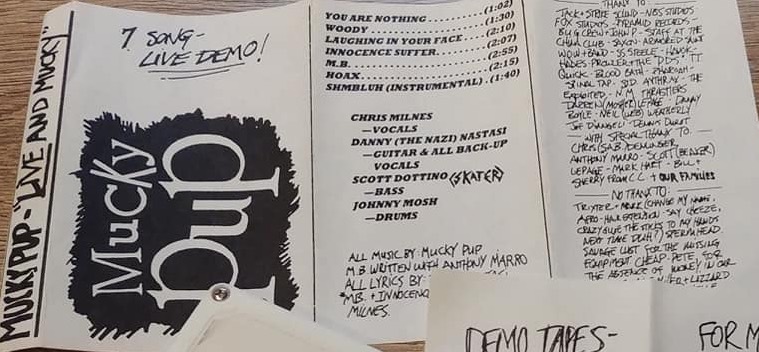 MUCKY PUP - "LIVE AND MUCKY"
7 SONG-
LIVE DEMO!
Mucky
Pup
YOU ARE NOTHING..........(1:02)
WOODY..........(1:30)
LAUGHING IN YOUR FACE..........(2:10)
INNOCENCE SUFFER..........(2:07)
M.B...........(2:55)
HOAX..........(2:15)
SHMBLUH (INSTRUMENTAL)..........(1:40)
CHRIS MILNES
—VOCALS
DANNY (THE NAZI) NASTASI
—GUITAR & ALL BACK-UP
VOCALS
SCOTT DOTTINO (SKATER)
—BASS
JOHNNY MOSH
—DRUMS
ALL MUSIC BY: MUCKY PUP
M.B WRITTEN WITH ANTHONY MARRO
ALL LYRICS BY:
*MB. + INNOCENC
MILNES.
THANX TO
JACK + STRIKE SOUND - NBS STUDIOS
FOX STUDIOS - PYRAMID RECORDS -
BIG G CREW + JOHN P - STAFF AT THE
CHINA CLUB - SAXON - ARMORED SAINT
WOW + BAND - S.S. STEELE - HAVOK -
HADES - PROWLER + THE D.D.S - TT
QUICK - BLOOD BATH - PHAROAH -
SPINAL TAP - S.O.D. ANTHRAX - THE
EXPLOITED - N.M. THRASTERS
DARREN (MOSHER) LEPAGE - DANNY
BOYLE - NEIL (WEB) WEATHERLY
JOE D'ANGELO - DENNIS DURUT
WITH SPECIAL THANX TO
CHRIS (S.A.B.)
ANTHONY MARRO - SCOTT (BEAGER)
LEPAGE - MARK HART - BILL +
SHERRY FROM C.C. + OUR FAMILIES
NO THANX TO:
TRIXTER + MARK (CHANGE MY NAME,
AERO-HAIR EXTENTION - SAY CHEEZE,
CRAZY GLUE THE STICKS TO MY HANDS
NEXT TIME DUH!) SPERM HEAD
SAVAGE LUST FOR THE MISSING
EQUIPMENT CHEAP-PETE, FOR
THE ABSENCE OF MONEY IN OUR
LIZZARD
DEMO TAPES-
FOR M